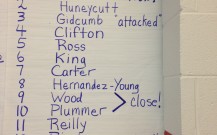 2 Huneycutt
3 Gidcumb "attacked"
4 Clifton
5 Ross
6 King
7 Carter
8 Hernandez-Young
9 Wood
10 Plummer > close!
11 Reilly